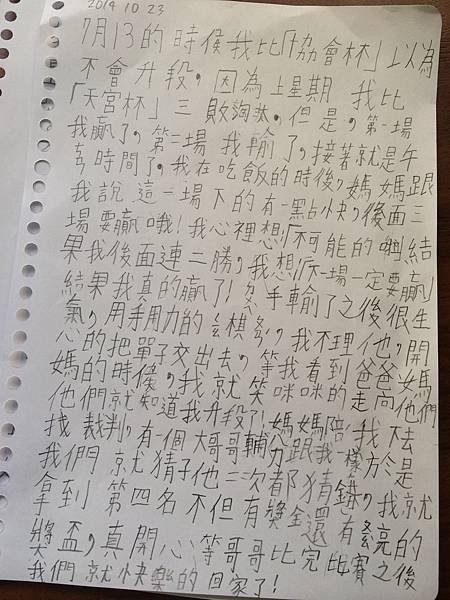 2014 10 23
7月13的時候我比「協會杯」以為
不會升段,因為上星期 我比
「天宮杯」三敗淘汰。但是,第一場
我贏了,第二場 我輸了,接著就是午
時間了,我在吃飯的時後,媽媽跟
我說這一場下的有一點小快,後面三
場要贏哦!我心裡想「不可能的啊」結
果我後面連二勝,我想「下一場一定要贏」
結果我真的贏了!手輸了之後很生
氣,用手用力的玄棋,我不理他,開
心的把單子交出去。等我看到爸爸媽
媽的時候,我就笑咪咪的走向他們
他們就知道我升段了!媽媽陪我去
找裁判,有一個大哥哥輔分跟我一樣,於是
我們就猜子他三次都猜錯。我就
拿到 第四名不但有獎金還有亮的
獎盃,真開心等哥哥比完比賽之後
我們就快樂的回家了!